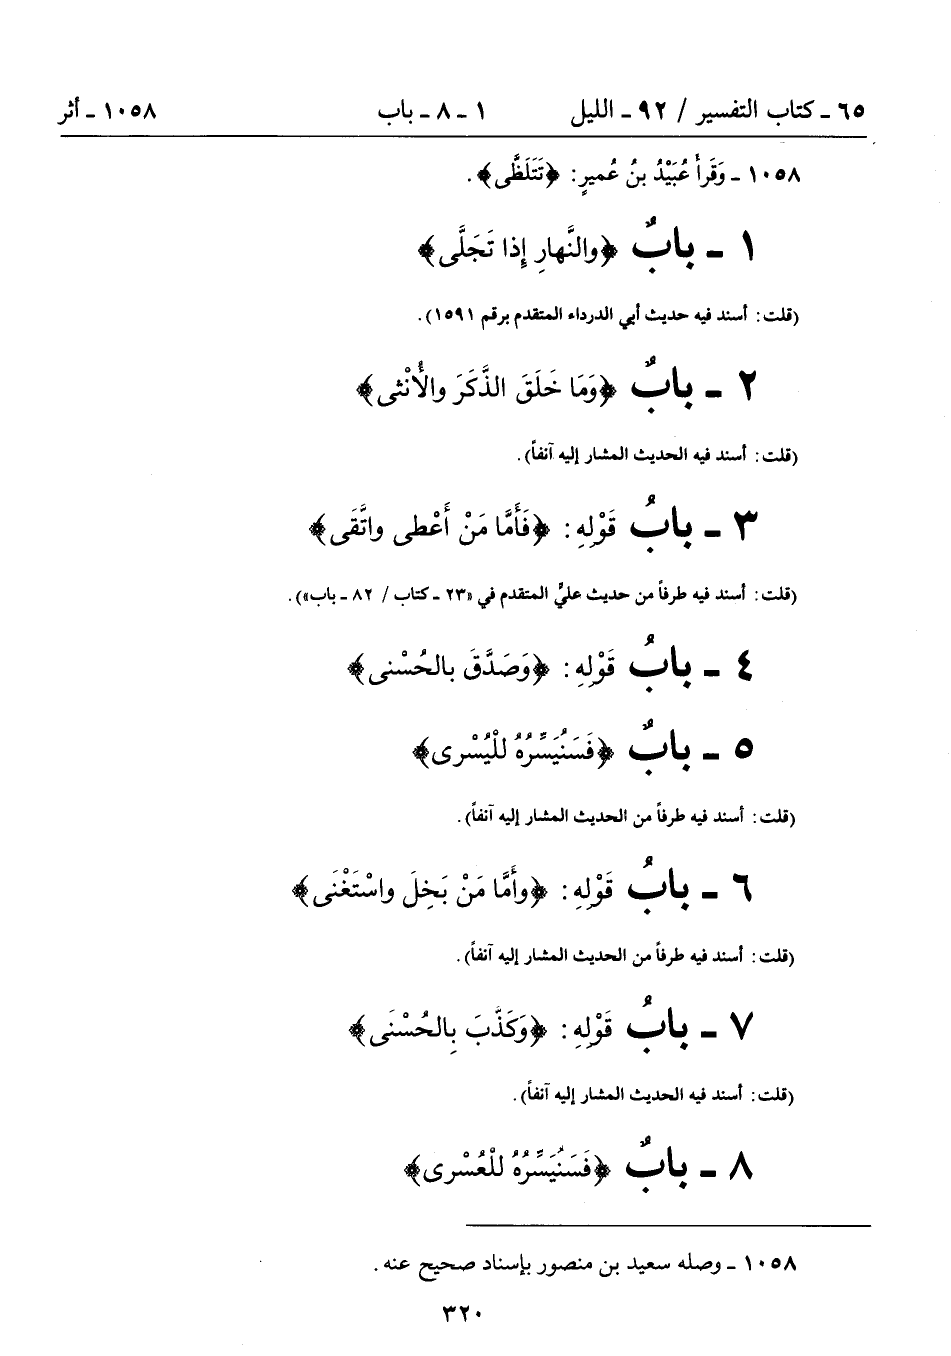 ٦٥ ـ كتاب التفسير / ٩٢ ـ الليل ١ ـ ٨ ـ باب ١٠٥٨ ـ أثر
١٠٥٨ ـ وَقَرأَ عُبَيْدُ بنُ عُميرٍ: ﴿تَتَلَظَّى﴾.
١ ـ بابٌ ﴿والنَّهارِ إِذا تَجَلَّى﴾
(قلت: أسند فيه حديث أبي الدرداء المتقدم برقم ١٥٩١).
٢ ـ بابٌ ﴿وَمَا خَلَقَ الذَّكَرَ والأُنْثى﴾
(قلت: أسند فيه الحديث المشار إليه آنفاً).
٣ ـ بابُ قَوْلِهِ: ﴿فَأَمَّا مَنْ أَعْطى واتَّقَى﴾
(قلت: أسند فيه طرفاً من حديث عليٍّ المتقدم في «٢٣ ـ كتاب / ٨٢ ـ باب»).
٤ ـ بابُ قَوْلِهِ: ﴿وَصَدَّقَ بالحُسْنى﴾
٥ ـ بابٌ ﴿فَسَنُيَسِّرُهُ للْيُسْرى﴾
(قلت: أسند فيه طرفاً من الحديث المشار إليه آنفاً).
٦ ـ بابُ قَوْلِهِ: ﴿وأَمَّا مَنْ بَخِلَ واسْتَغْنَى﴾
(قلت: أسند فيه طرفاً من الحديث المشار إليه آنفاً).
٧ ـ بابُ قَوْلِهِ: ﴿وَكَذَّبَ بِالحُسْنَى﴾
(قلت: أسند فيه الحديث المشار إليه آنفاً).
٨ ـ بابٌ ﴿فَسَنُيَسِّرُهُ للْعُسْرى﴾
١٠٥٨ ـ وصله سعيد بن منصور بإسناد صحيح عنه.
٣٢٠